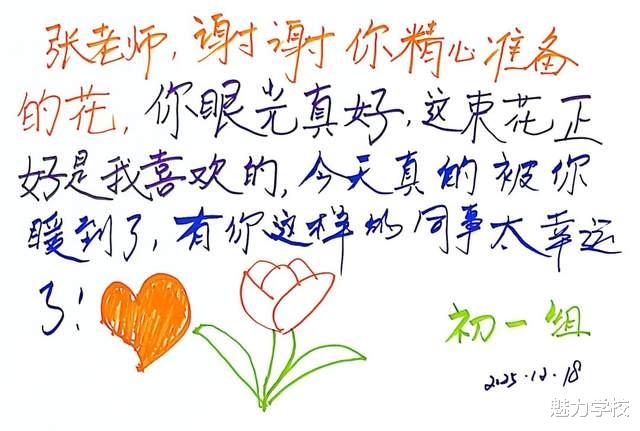 张老师，谢谢你精心准备
的花，你眼光真好，这束花正
好是我喜欢的，今天真的被你
暖到了，有你这样的同事太幸运
了！
初一组
2025.12.18
魅力学校